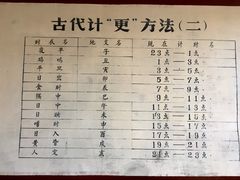 古代计“更”方法(二)
时辰名 地支名 现在计时名
夜半 子 23点——1点
鸡鸣 丑 1点——3点
平旦 寅 3点——5点
日出 卯 5点——7点
食时 辰 7点——9点
隅中 巳 9点——11点
日中 午 11点——13点
日昳 未 13点——15点
晡时 申 15点——17点
日入 酉 17点——19点
黄昏 戌 19点——21点
人定 亥 21点——23点